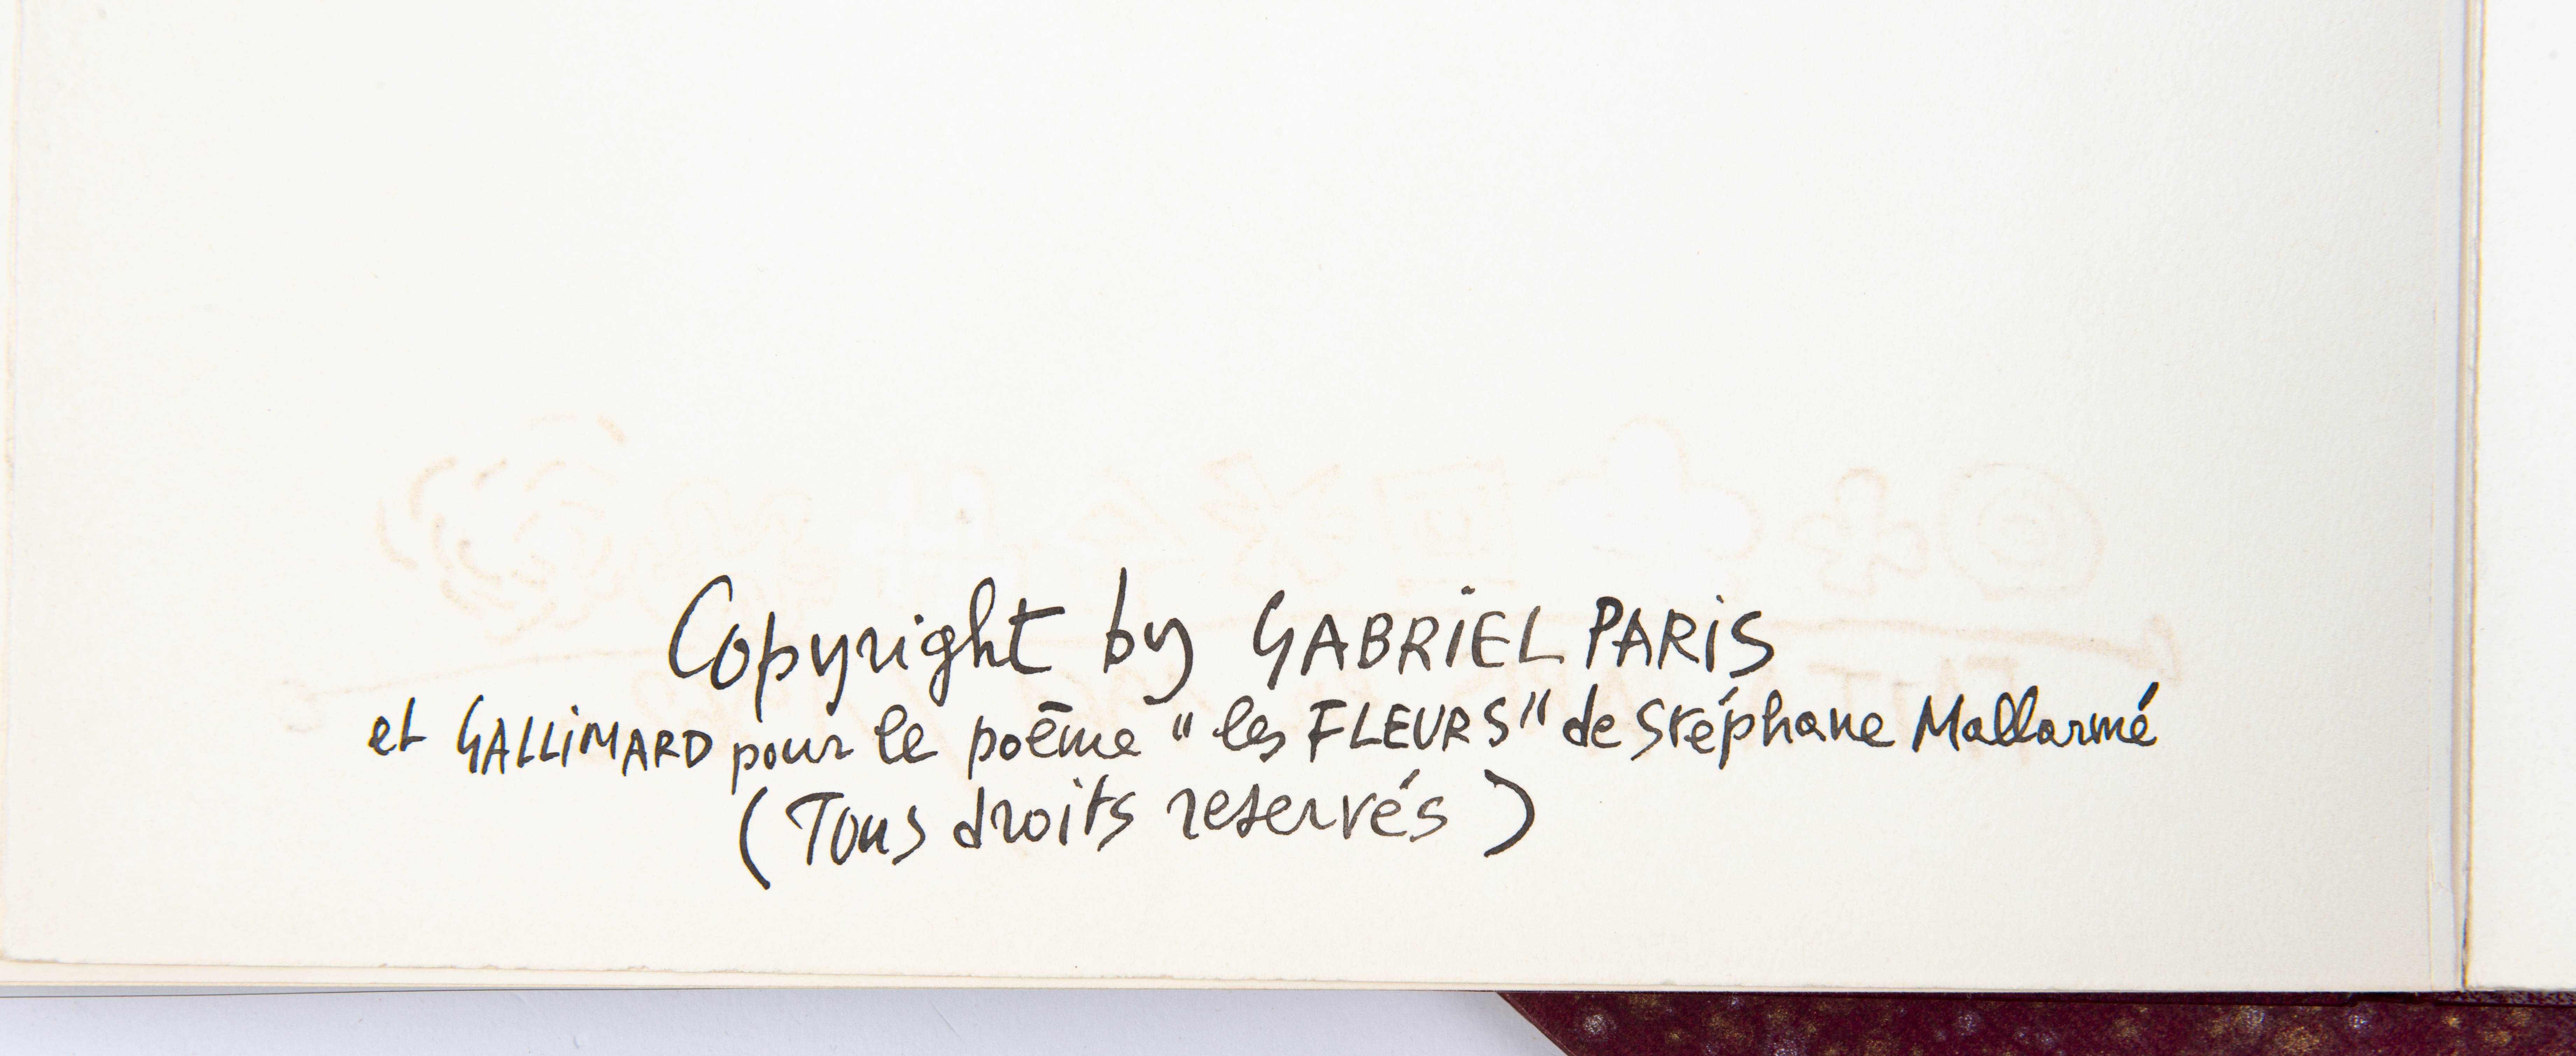 Copyright by GABRIEL PARIS
et GALLIMARD pour le poēme "les FLEURS" de Stéphane Mallarmé
(Tous droits reservés)